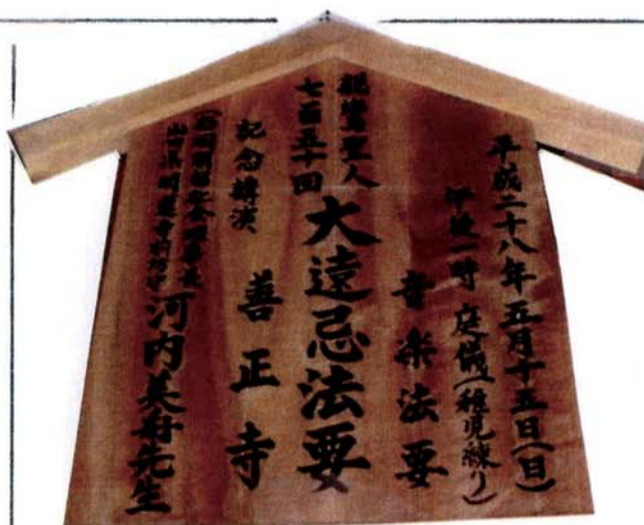 平成二十八年五月十五日(日)
午後一時 庭儀(稚児練り)
音楽法要
親鸞聖人
七百五十回
大遠忌法要
善正寺
記念講演
河内美舟先生